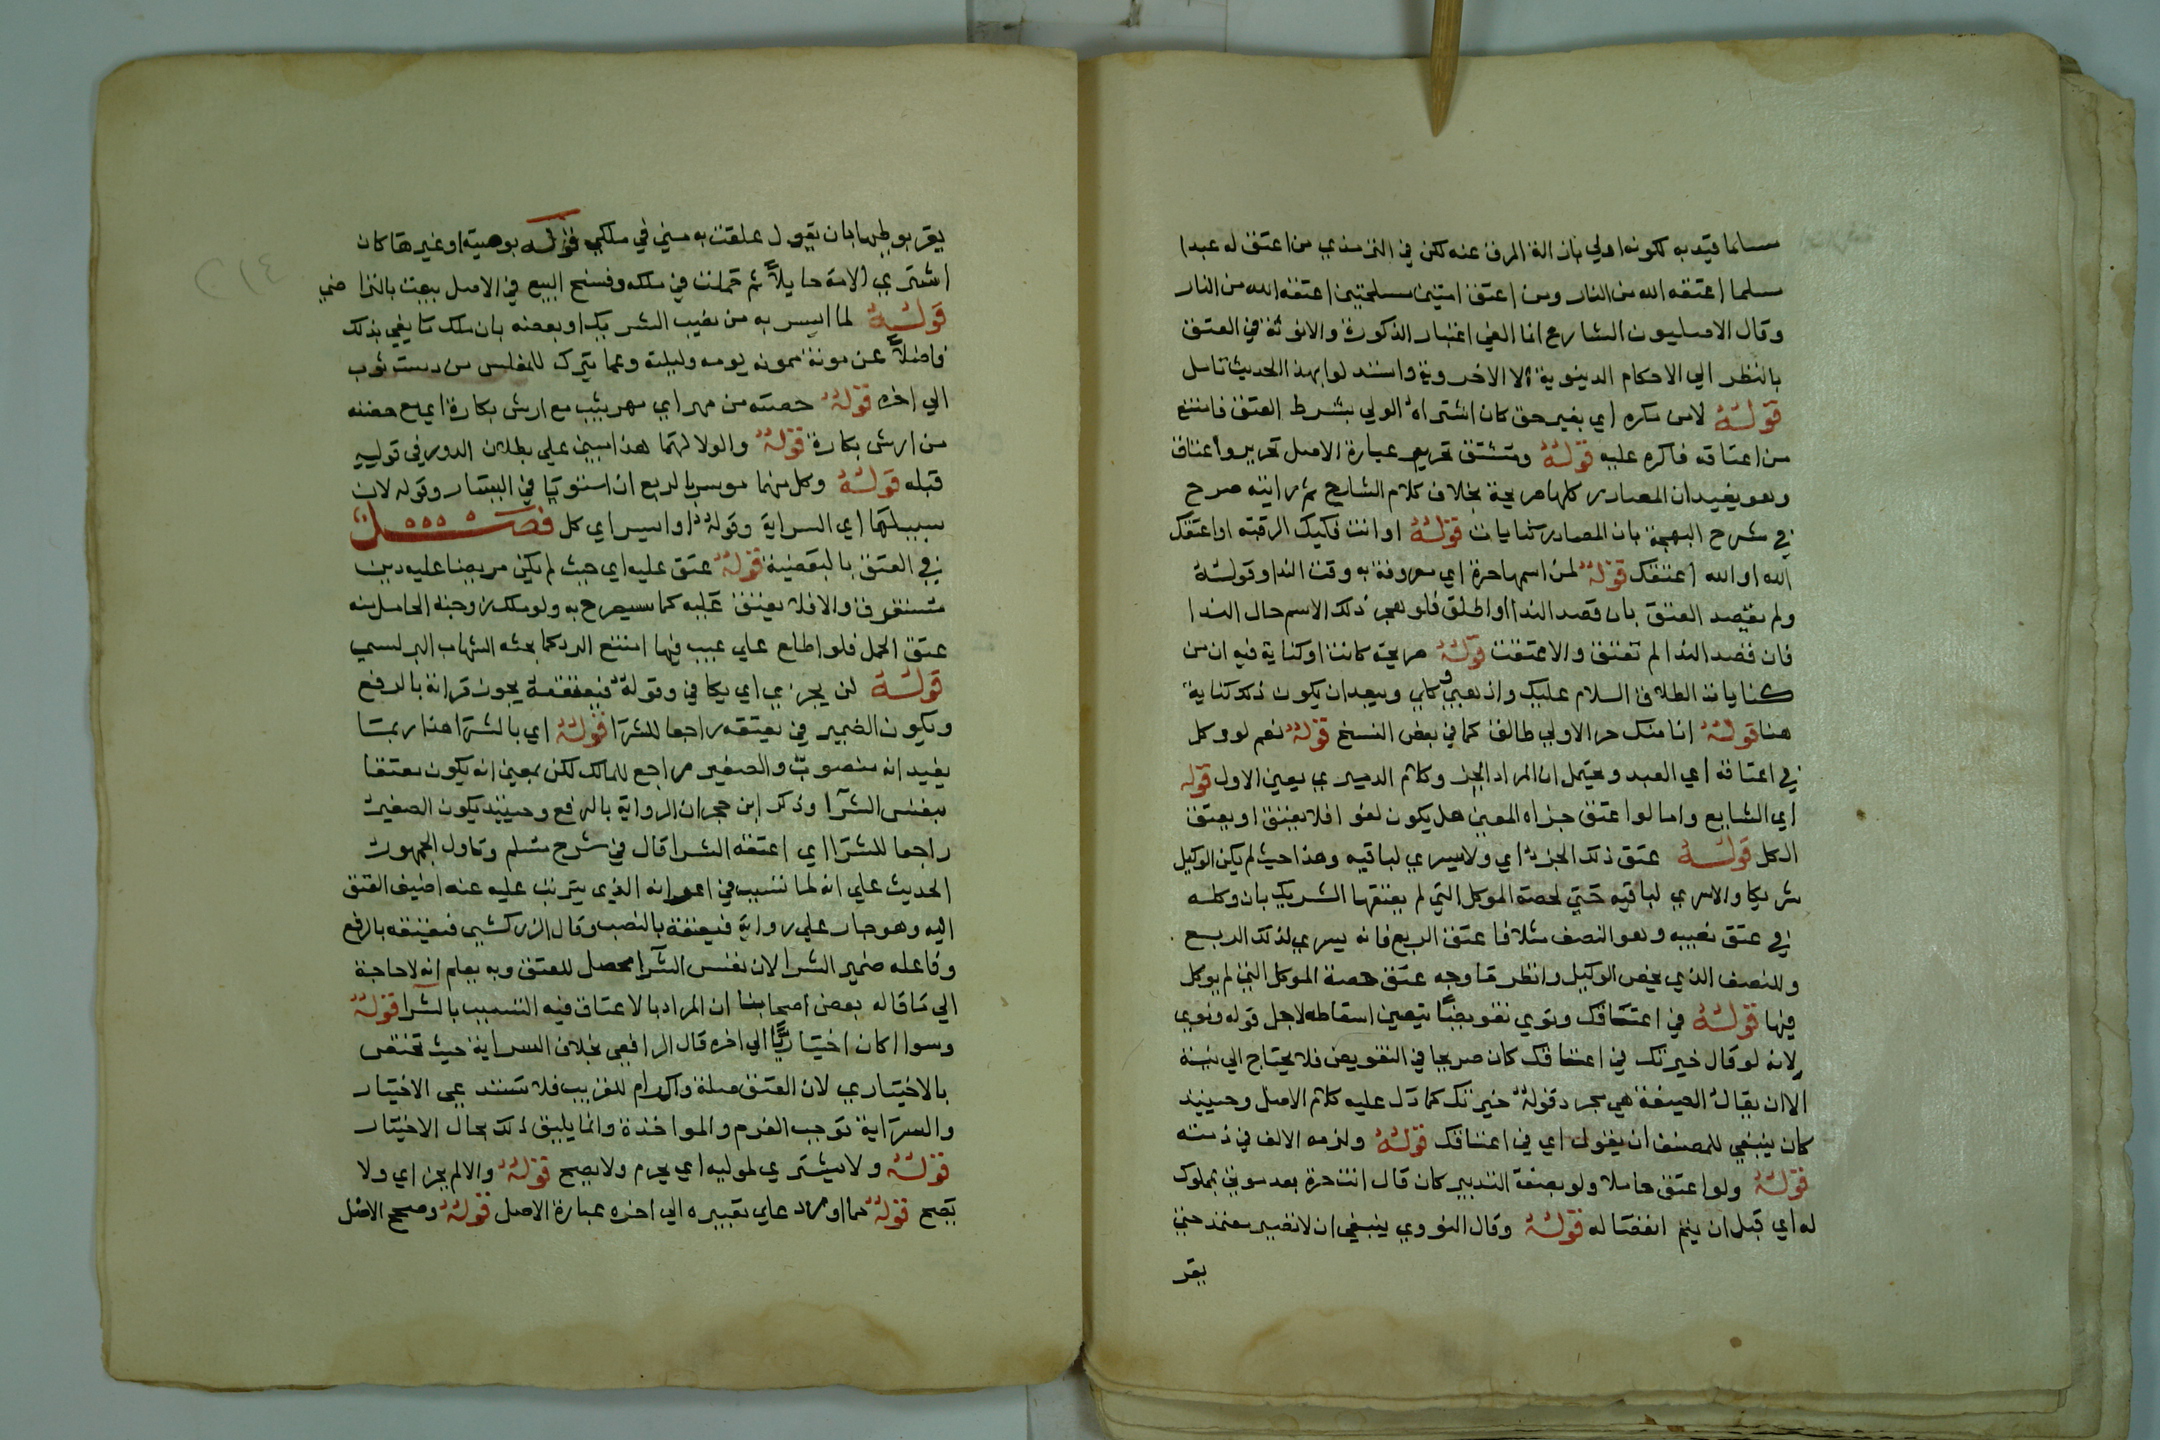 مسلما قيد به لكونه اولي بان الغ المرق عنه لكن في الترمذي من اعتق له عبدا
مسلما اعتقه الله من النار ومن اعتق امتين مسلمتين اعتقه الله من النار
وقال الاصليون الشارع انما الغي اعتبار الذكورة والانوثة في العتق
بالنظر الي الاحكام الدينوية لا الاخروية واستدلوا بهذا الحديث تامل
قوله لامن مكره اي بغير حق كان اشتراه الولي بشرط العتق فامتنع
من اعتاقه فاكره عليه قوله ومشتق تحرير عبارة الاصل تحرير واعتاق
وهو يفيد ان المصادر كلها صريحة بخلاف كلام الشارح ثم رايته صرح
في شرح البهجة بان المصادر كنايات قوله او انت فكيك الرقبه او اعتقك
الله او الله اعتقك قوله لمن اسمها حرة اي معروفة به وقت الندا وقوله
ولم يقصد العتق بان قصد الندا او اطلق فلو هجر ذلك الاسم حال الندا
فان قصد الندا لم تعتق والاعتقت قوله صريحة كانت او كناية فيه ان من
كنايات الطلاق السلام عليك واذهبي وكلي ويبعد ان يكون ذلك كناية
هنا قوله انا منك حر الاولي طالق كما في بعض النسخ قوله نعم لو وكل
في اعتاقه اي العبد ويحتمل ان المراد الجز وكلام الدميري يعين الاول قوله
اي الشايع واما لو اعتق جزاه المعين هل يكون لغوا فلا يعتق او يعتق
الكل قوله عتق ذلك الجز اي ولا يسري لباقيه وهذا حيث لم يكن الوكيل
شريكا والاسري لباقيه حتي لحصة الموكل التي لم يعتقها الشريك بان وكله
في عتق نصيبه وهو النصف مثلا فاعتق الربع فانه يسري لذلك الربع
وللنصف الذي يخص الوكيل وانظر ما وجه عتق حصة الموكل التي لم يوكل
فيها قوله في اعتاقك ونوي تفويضا يتعين اسقاطه لاجل قوله ونوي
لانه لو قال خيرتك في اعتاقك كان صريحا في التفويض فلا يحتاج الي نية
الا ان يقال الصيغة هي مجرد قوله خيرتك كما دل عليه كلام الاصل وحينيذ
كان ينبغي للمصنف ان يقول اي في اعتاقك قوله ولزمه الالف في ذمته
قوله ولو اعتق حاملا ولو بصفة التدبير كان قال انت حرة بعد موتي بمملوك
له اي قبل ان يتم انفصاله قوله وقال النووي ينبغي ان لا تصير عند حتي
يقر
يقر بوطيها بان يقول علقت به مني في ملكي قوله بوصية او غيرها كان
اشتري الامة حايلا ثم حملت في ملكه وفسخ البيع في الاصل بيعت بالتراضي
قوله لما ايسر به من نصيب الشريك او بعضه بان ملك ما يفي بذلك
فاضلا عن مونة ممونه يومه وليلته وعما يترك للمفلس من دست ثوب
الي اخره قوله حصته من مهر اي مهر ثيب مع ارش بكارة اي مع حصته
من ارش بكارة قوله والولا لهما هذا مبني علي بطلان الدور في قوليه
قبله قوله وكل منهما موسر بالربع ان استويا في اليسار وقوله لان
سبيلها اي السراية وقوله او ايسر اي كل فصل
في العتق بالبعضية قوله عتق عليه اي حيث لم يكن مريضا عليه دين
مستغرق والا فلا يعتق عليه كما سيصرح به ولو ملك زوجته الحامل منه
عتق الحمل فلو اطلع علي عيب فيها امتنع الرد كما بحثه الشهاب البرلسي
قوله لن يجزي اي يكافي وقوله فيعتقه يجوز قرانه بالرفع
ويكون الضمير في يعتقه راجعا للشرا قوله اي بالشرا هذا ربما
يفيد انه منصوب والضمير راجع للمالك لكن بمعني انه يكون معتقا
بنفس الشرا وذكر ابن حجر ان الرواية بالرفع وحينيذ يكون الضمير
راجعا للشرا اي اعتقه الشرا قال في شرح مسلم وتاول الجمهور
الحديث علي انه لما تسبب في الذي يترتب عليه عتقه اضيف العتق
اليه وهو جار علي رواية فيعتقه بالنصب وقال الزركشي فيعتقه بالرفع
وفاعله ضمير الشرا لان نفس الشرا محصل للعتق وبه يعلم انه لا حاجة
الي ما قاله بعض اصحابنا ان المراد بالاعتاق فيه التسبب بالشرا قوله
وسوا اكان اختياريا الي اخره قال الرافعي بخلاف السراية حيث تختص
بالاختياري لان العتق صلة واكرام للقريب فلا تستدعي الاختيار
والسراية توجب الغرم والمواخذة وانما يليق ذلك بحال الاختيار
قوله ولا يشتري لموليه اي يحرم ولا يصح قوله والا لم يجز اي ولا
يصح قوله مما زاد علي تعبيره الي اخره عبارة الاصل قوله وصحح الاصل
٢١٤